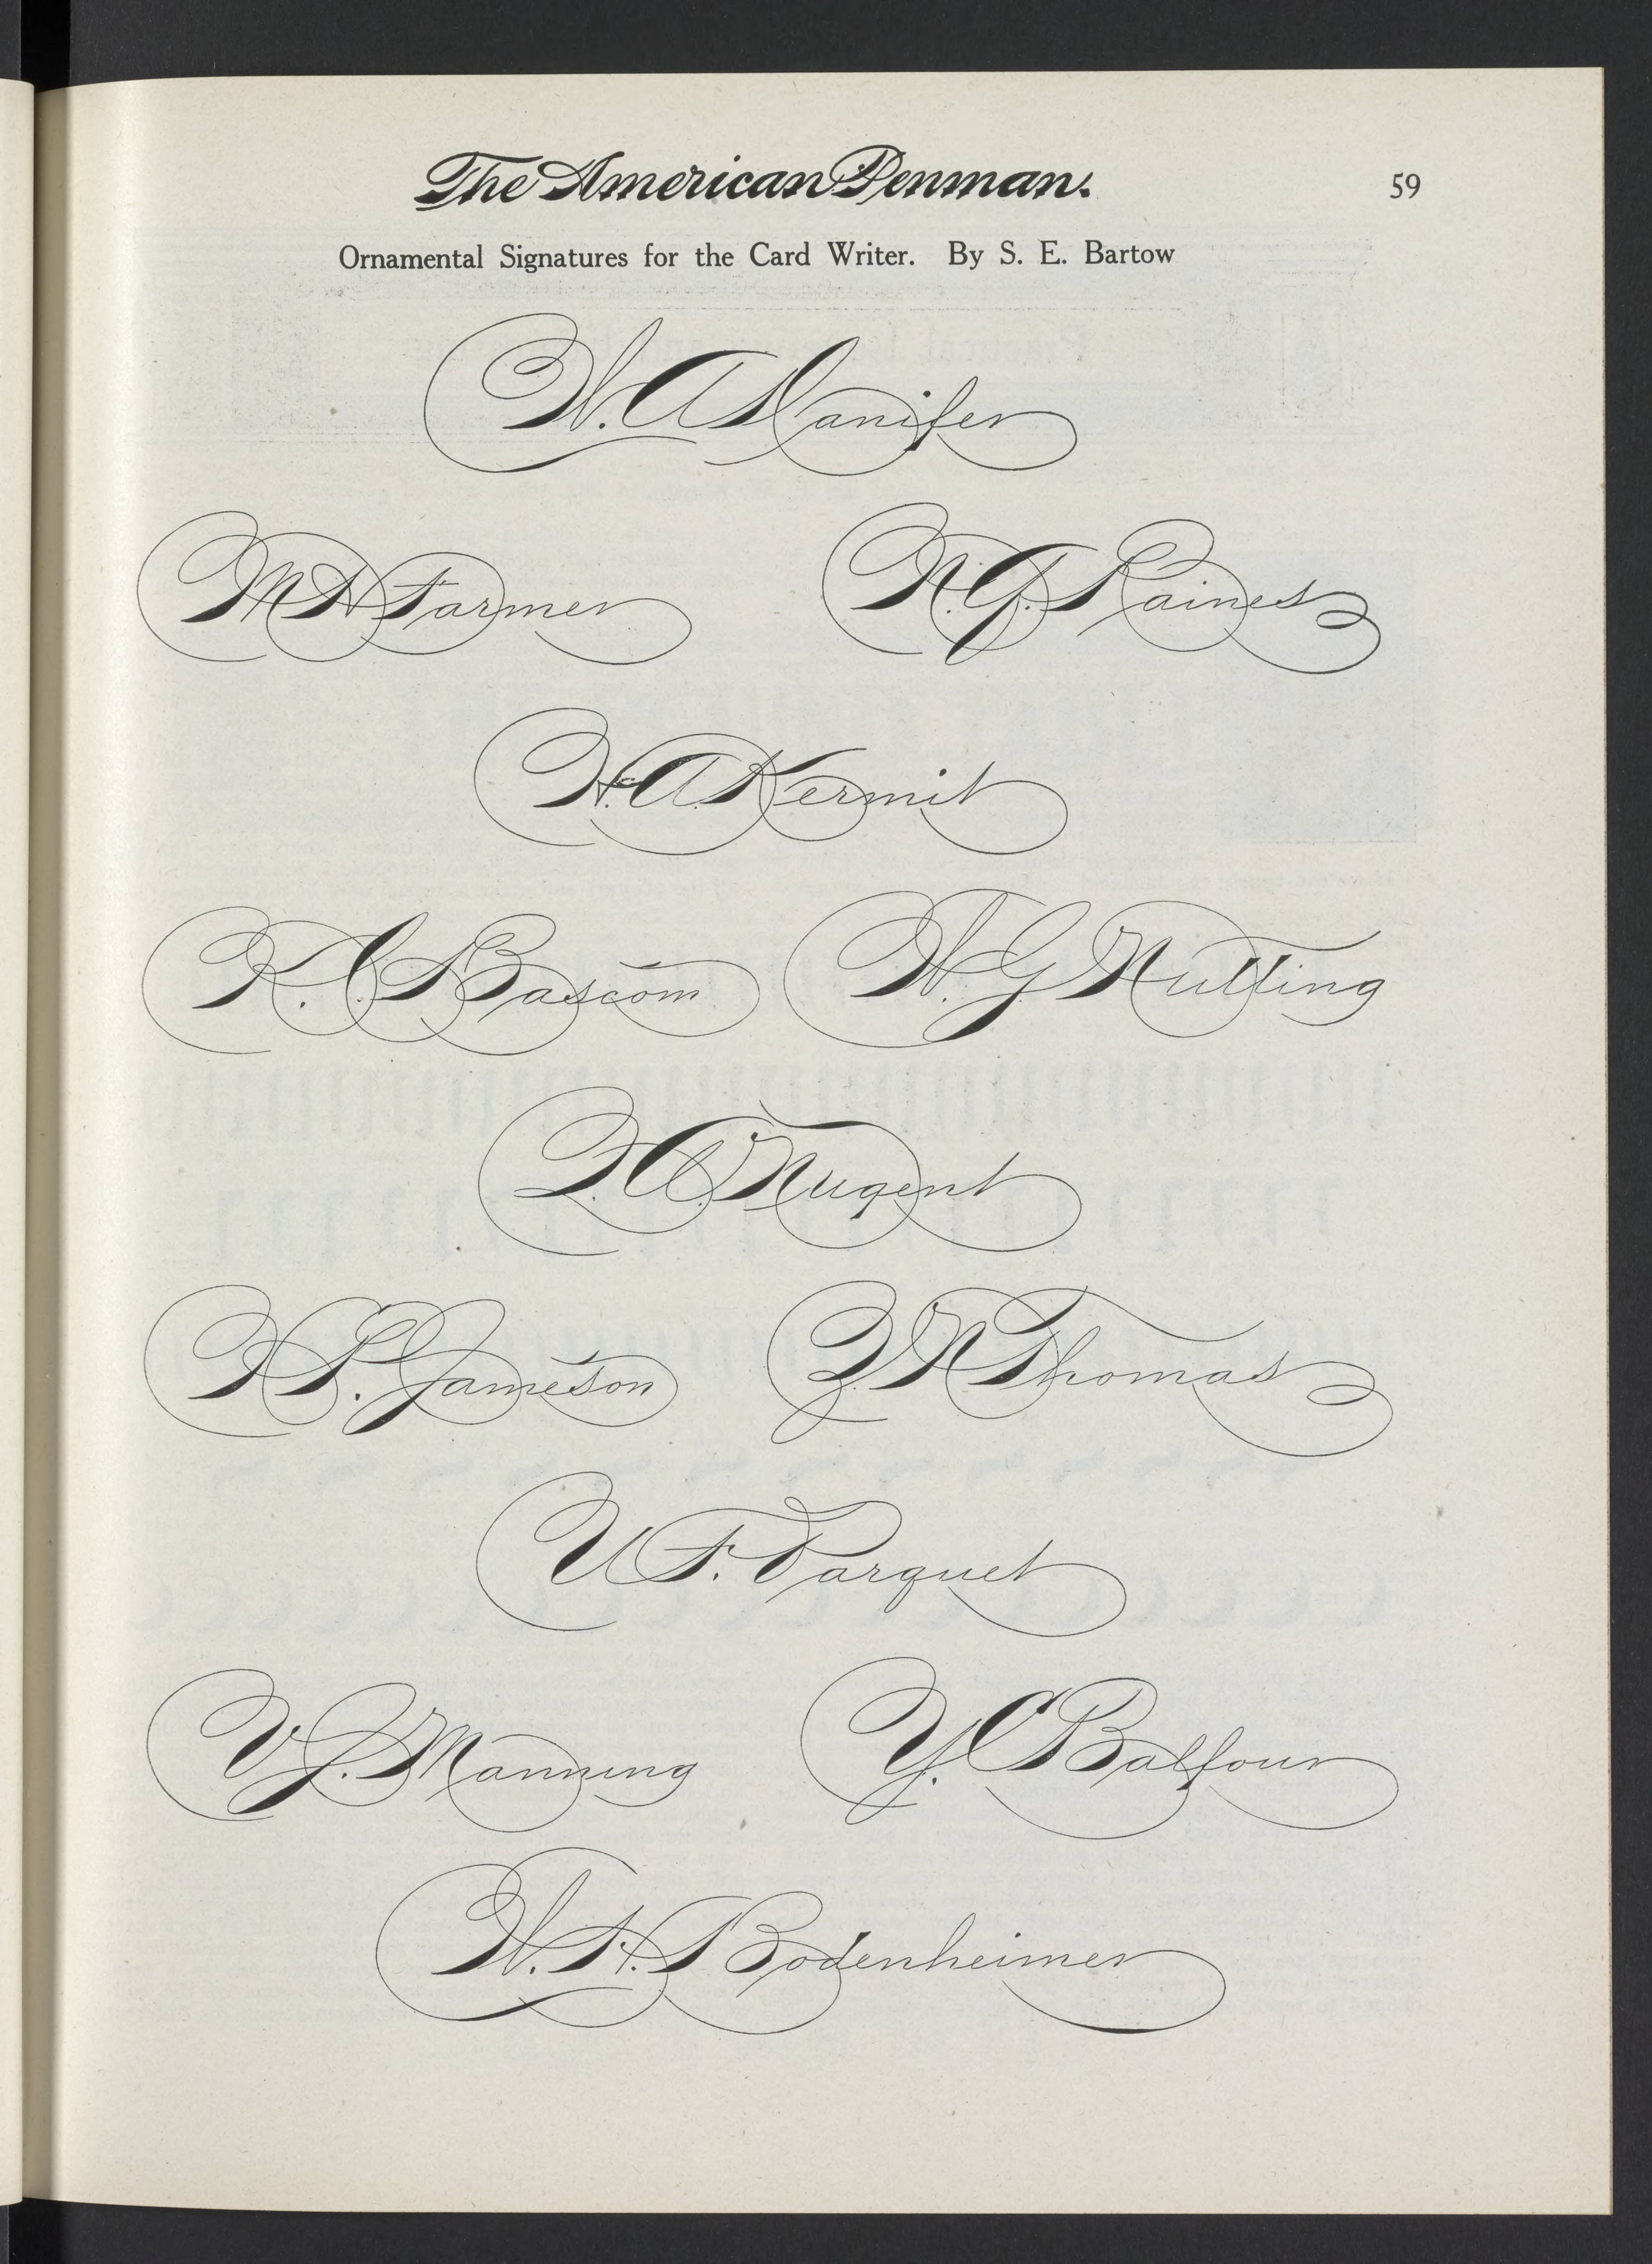 The American Penman.
59
Ornamental Signatures for the Card Writer. By S. E. Bartow
W. A
M H Farmer
N. G. Raines
H. A. Kermit
K. C. Bascom
W. G Nutting
Q. C. Nugent
X S. Jameson
Z. N Thomas
U F. Parquet
V J. Manning
Y. C Balfour
W. H. Bodenheimer